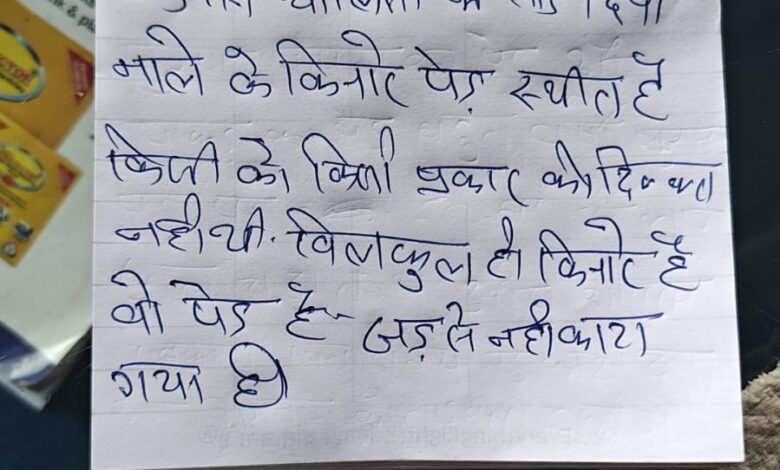 नाले के किनारे पेड़ स्थीत है
किसी को किसी प्रकार की दिक्कत
नही थी. विलकुल ही किनारे है
वो पेड है - जड़ से नही काटा
गया है